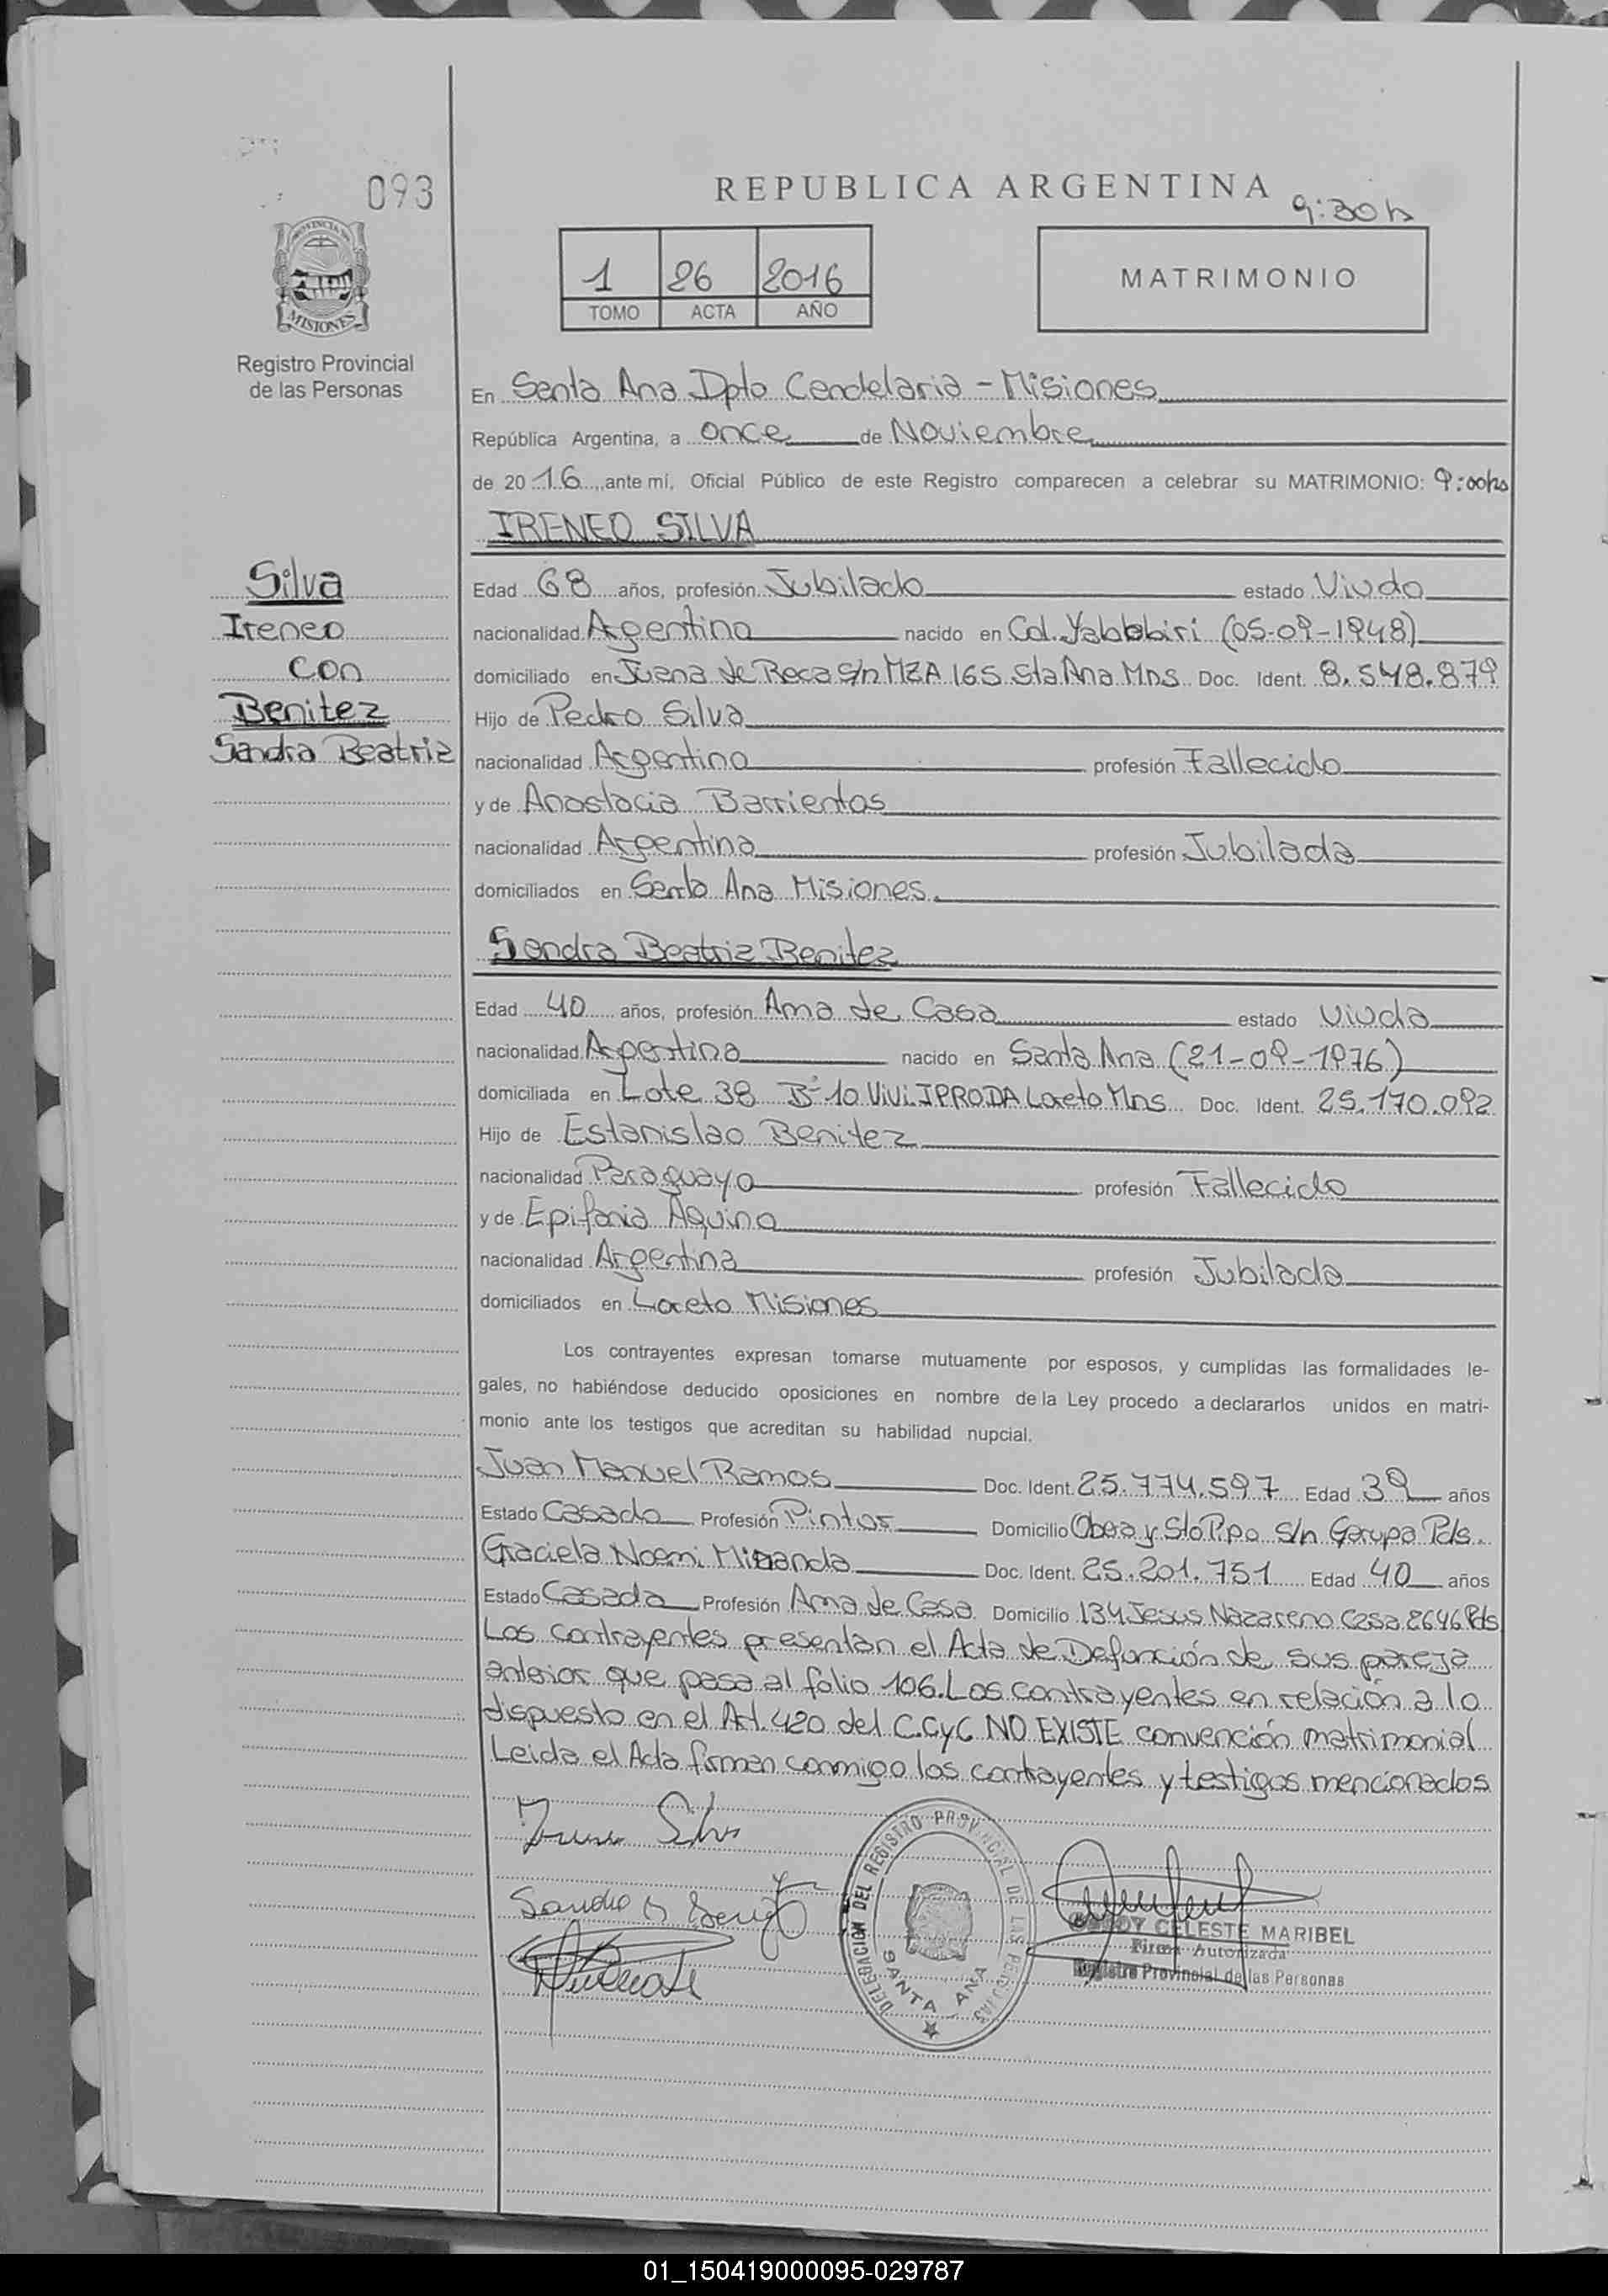 093
REPUBLICA ARGENTINA
9:30 hs
PROVINCIA DE
MISIONES
Registro Provincial
de las Personas
1 26 2016
TOMO ACTA AÑO
MATRIMONIO
En Santa Ana Dpto Candelaria - Misiones
República Argentina, a once de Noviembre
de 2016, ante mí, Oficial Público de este Registro comparecen a celebrar su MATRIMONIO: 9:00hs
IRENEO SILVA
Silva
Ireneo
con
Benitez
Sandra Beatriz
Edad 68 años, profesión Jubilado estado Viudo
nacionalidad Argentina nacido en Col. Yabebiri (05-09-1948)
domiciliado en Juana de Roca s/n MZA 165 Sta Ana Mns Doc. Ident. 8.548.879
Hijo de Pedro Silva
nacionalidad Argentina profesión Fallecido
y de Anastacia Barrientos
nacionalidad Argentina profesión Jubilada
domiciliados en Santa Ana Misiones
Sandra Beatriz Benitez
Edad 40 años, profesión Ama de Casa estado Viuda
nacionalidad Argentina nacido en Santa Ana (21-09-1976)
domiciliada en Lote 38 Bº 10 ViVi IPRODA Loreto Mns Doc. Ident. 25.170.092
Hijo de Estanislao Benitez
nacionalidad Paraguaya profesión Fallecido
y de Epifania Aquino
nacionalidad Argentina profesión Jubilada
domiciliados en Loreto Misiones
Los contrayentes expresan tomarse mutuamente por esposos, y cumplidas las formalidades le-
gales, no habiéndose deducido oposiciones en nombre de la Ley procedo a declararlos unidos en matri-
monio ante los testigos que acreditan su habilidad nupcial.
Juan Manuel Ramos Doc. Ident. 25.774.597 Edad 39 años
Estado Casado Profesión Pintor Domicilio Obera y Sto Pipo s/n Garupa Pds.
Graciela Noemi Miranda Doc. Ident. 25.201.751 Edad 40 años
Estado Casada Profesión Ama de Casa Domicilio 134 Jesus Nazareno Casa 2646 Pds
Los contrayentes presentan el Acta de Defunción de sus pareja
anterior que pasa al folio 106. Los contrayentes en relación a lo
dispuesto en el Art. 420 del C.C y C NO EXISTE convención matrimonial
Leida el Acta firman conmigo los contrayentes y testigos mencionados
Ireneo Silva
Sandra B Benitez
DELEGACIÓN DEL REGISTRO PROVINCIAL DE LAS PERSONAS
SANTA ANA
CELESTE MARIBEL
Firma Autorizada
Registro Provincial de las Personas
01_150419000095-029787